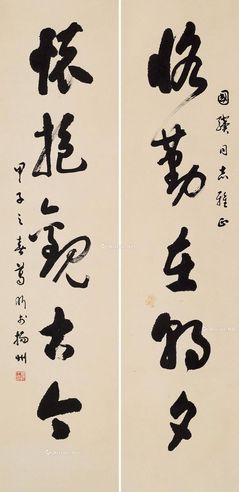 恪勤在朝夕
國驥同志雅正
懷抱觀古今
甲子之春葛昕於揚州